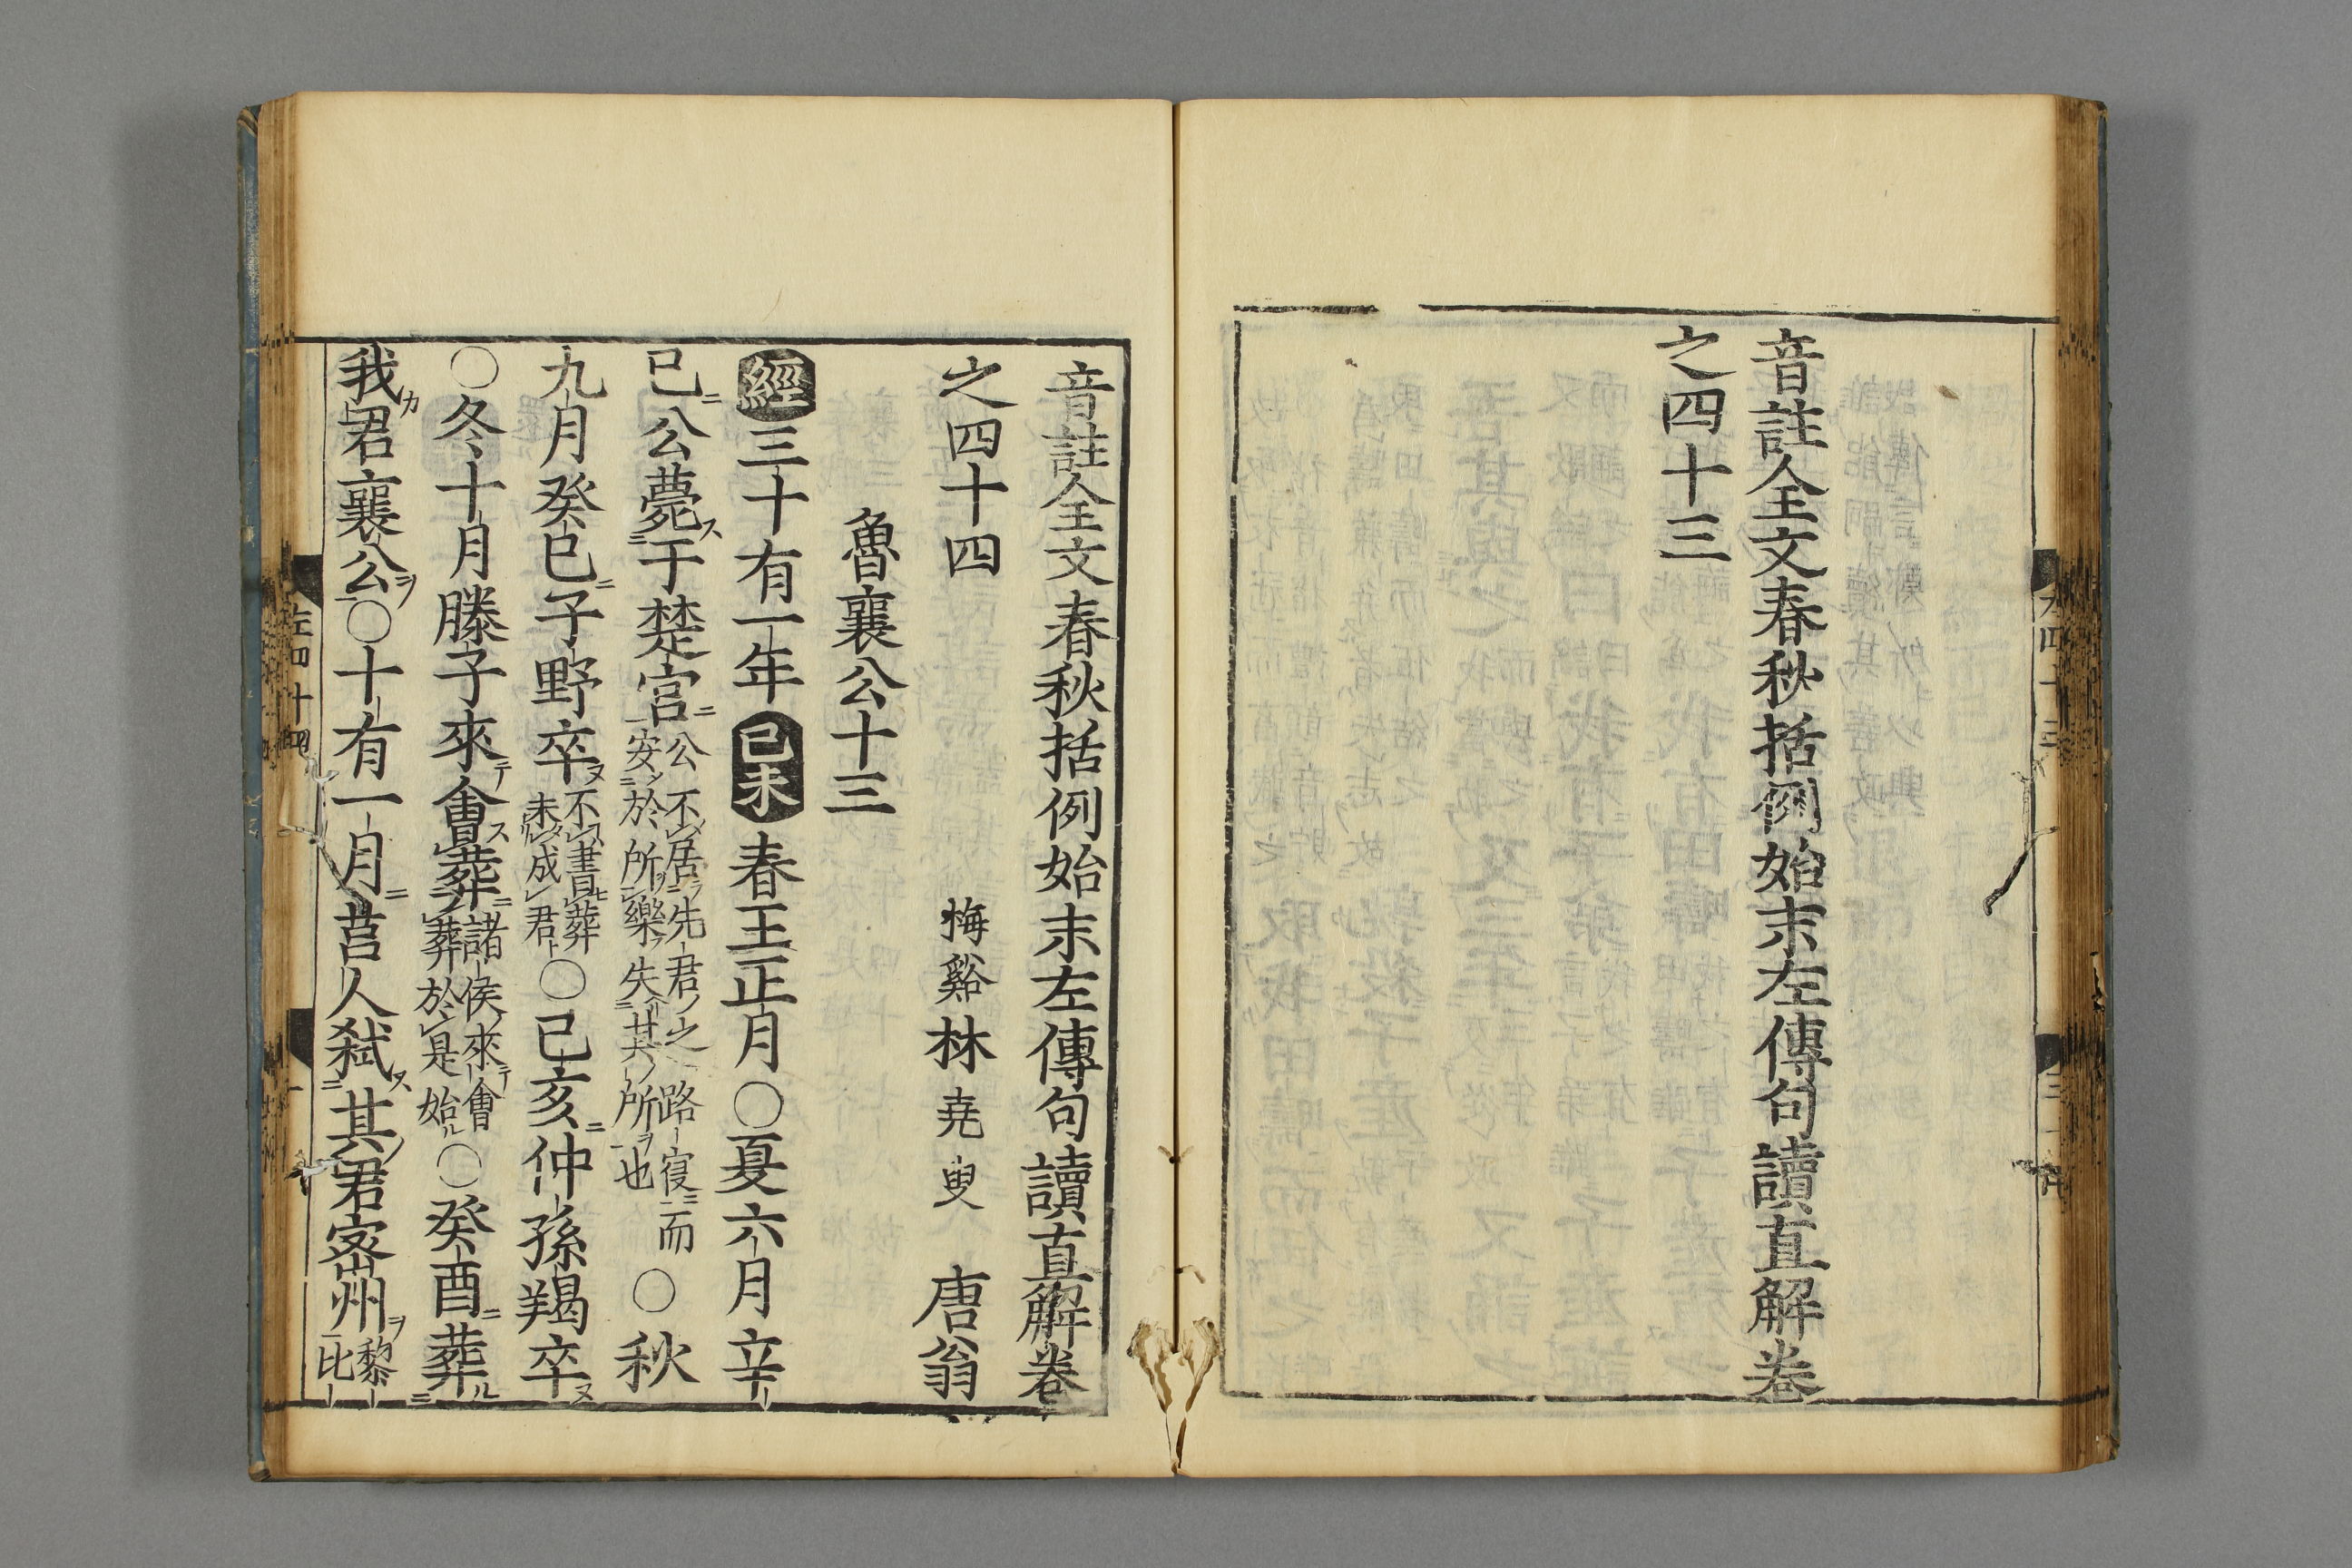 音註全文春秋括例始末左傳句讀直解卷
之四十三
音註全文春秋括例始末左傳句讀直解卷
之四十四　梅谿林堯叟唐翁
魯襄公十三
經三十有一年己未春王正月○夏六月辛
巳ニ公薨ス于楚宮ニ公不居先君ノ之路寢ニ而
安於所樂失其ノ所ヲ也○秋
九月癸巳ニ子野卒ヌ不書葬
未成君○己亥ニ仲孫羯卒ヌ
○冬十月滕子來テ會ス葬ニ諸侯來テ會
葬於是始ル○癸酉ニ葬ル
我カ君襄公ヲ○十有一月ニ莒人弒ス其ノ君密州ヲ黎
比
左四十四